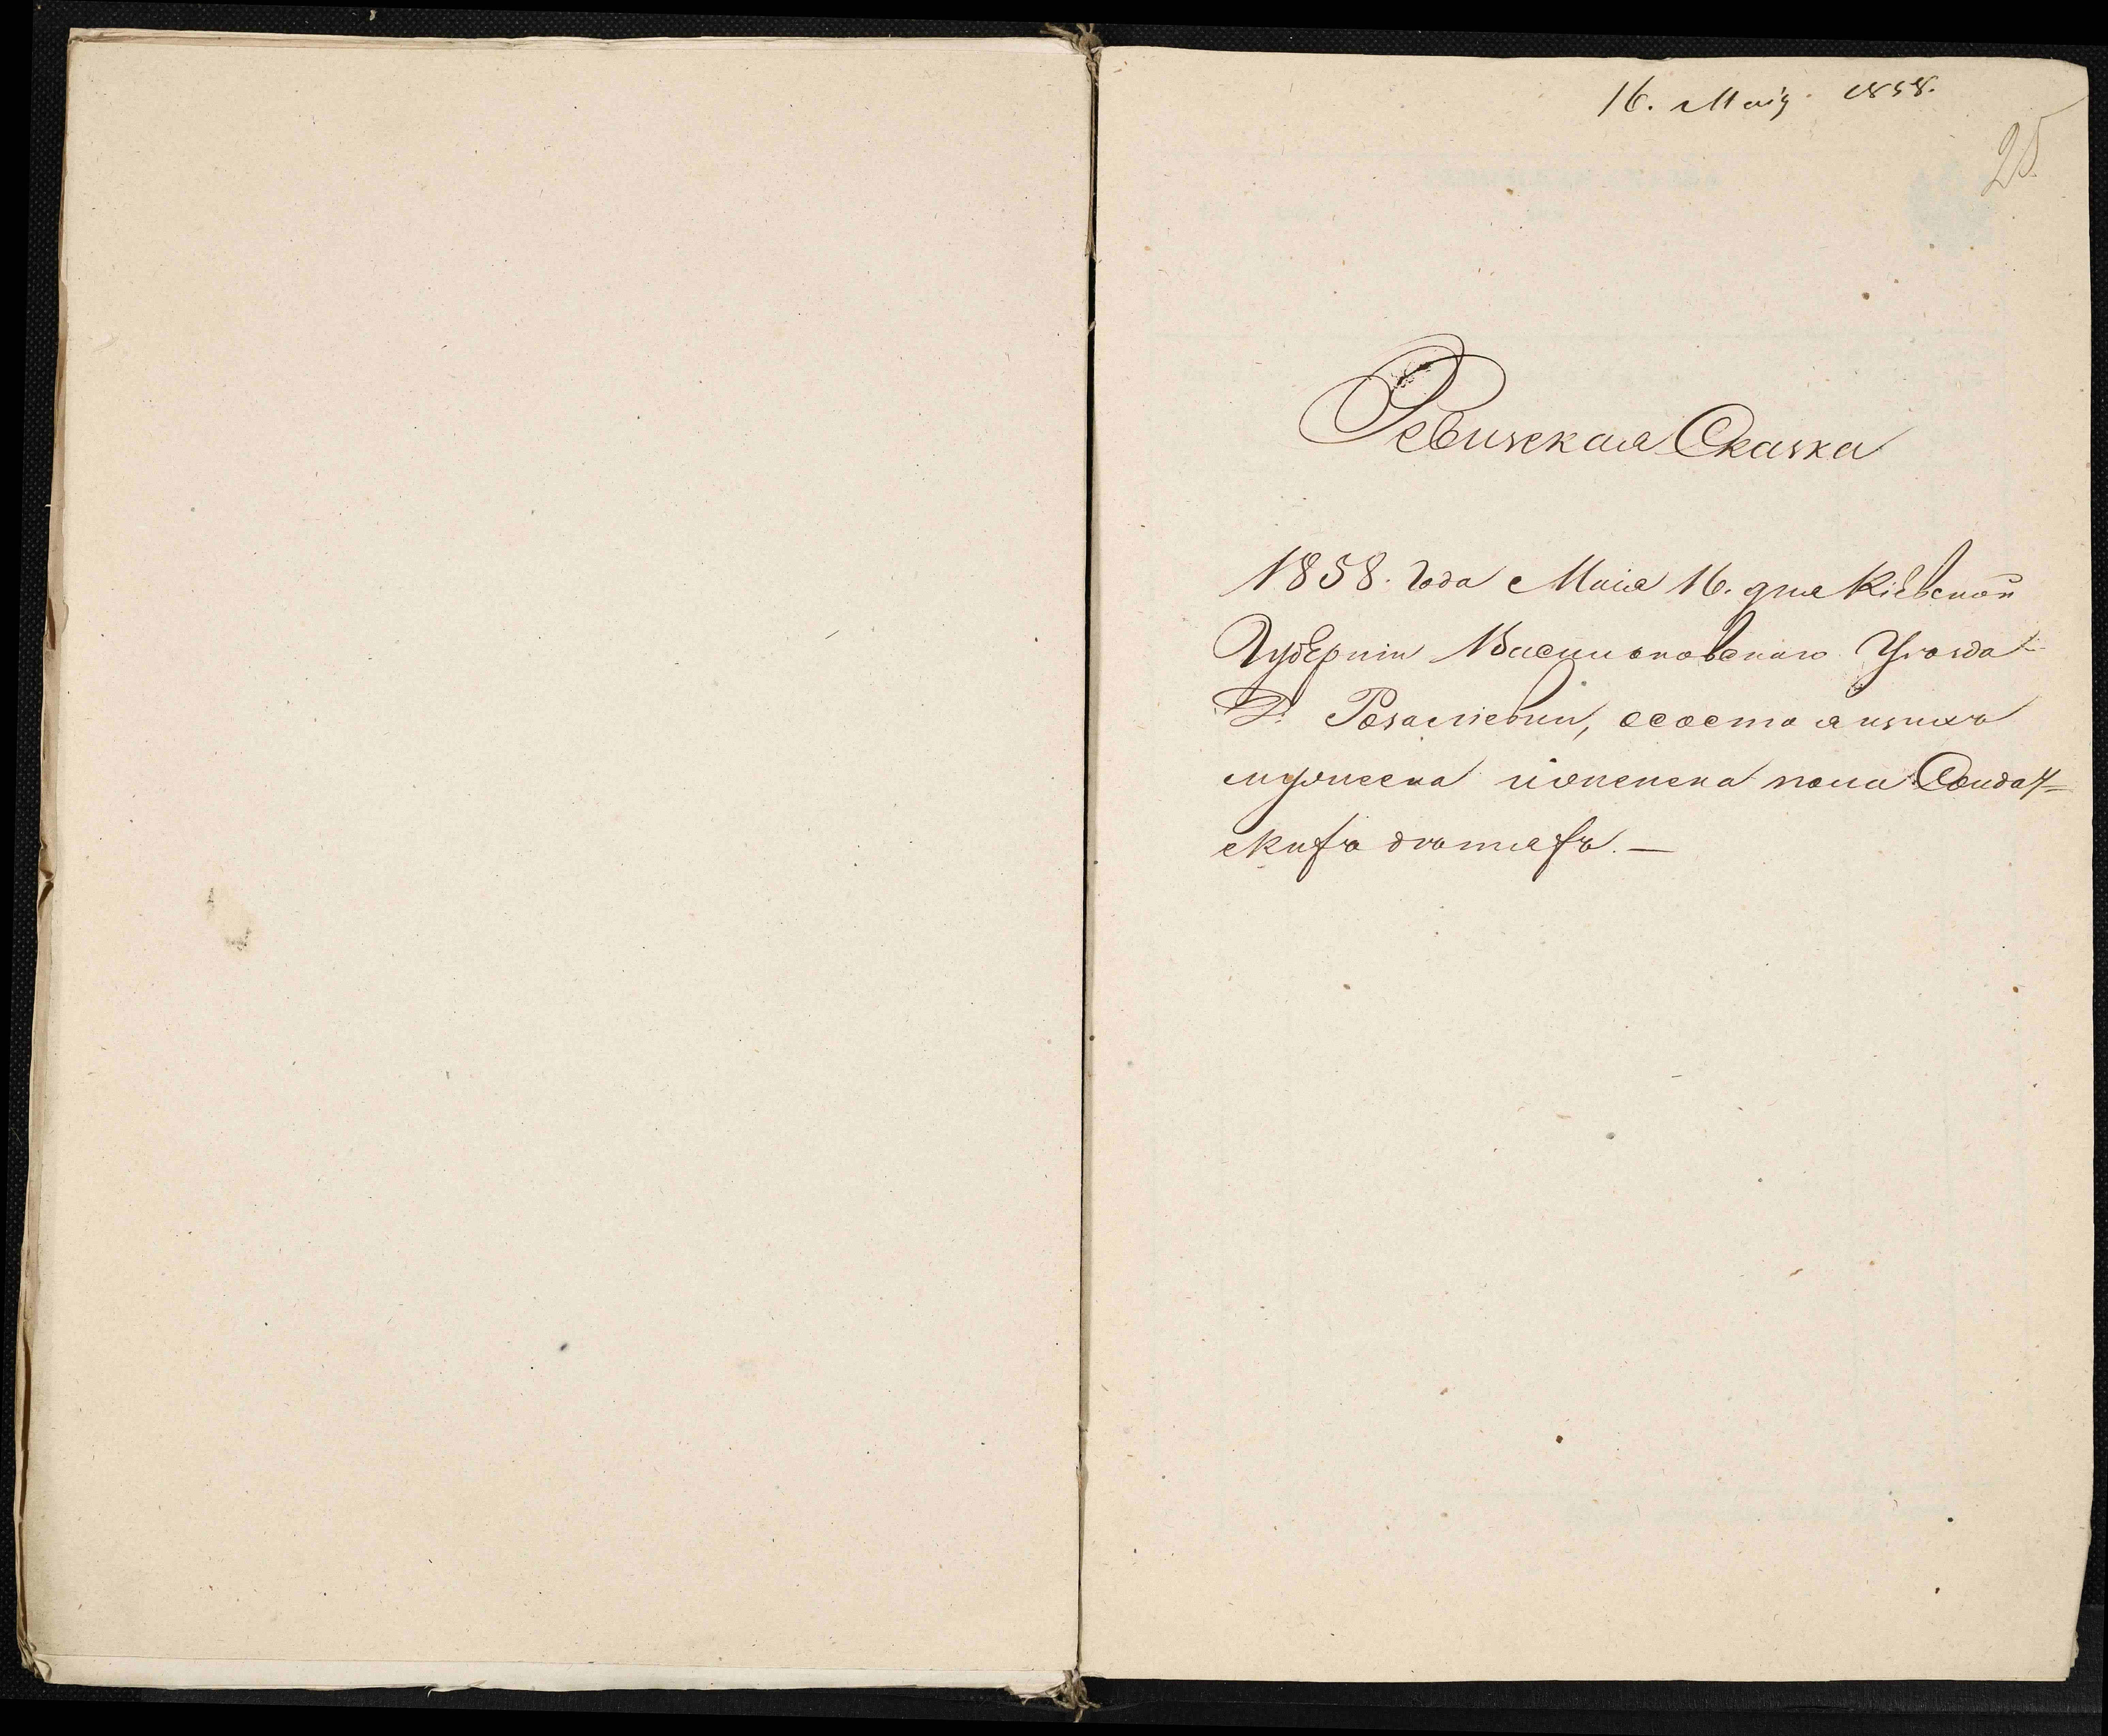 16. Маія 1858.
25
Ревизская Сказка
1858. Года Маія 16. дня Кіевской
Губерніи Васильковскаго Уѣзда
Д. Розаліевки, о состоящихъ
мужеска и женска пола Солдат=
скихъ дѣтяхъ. —